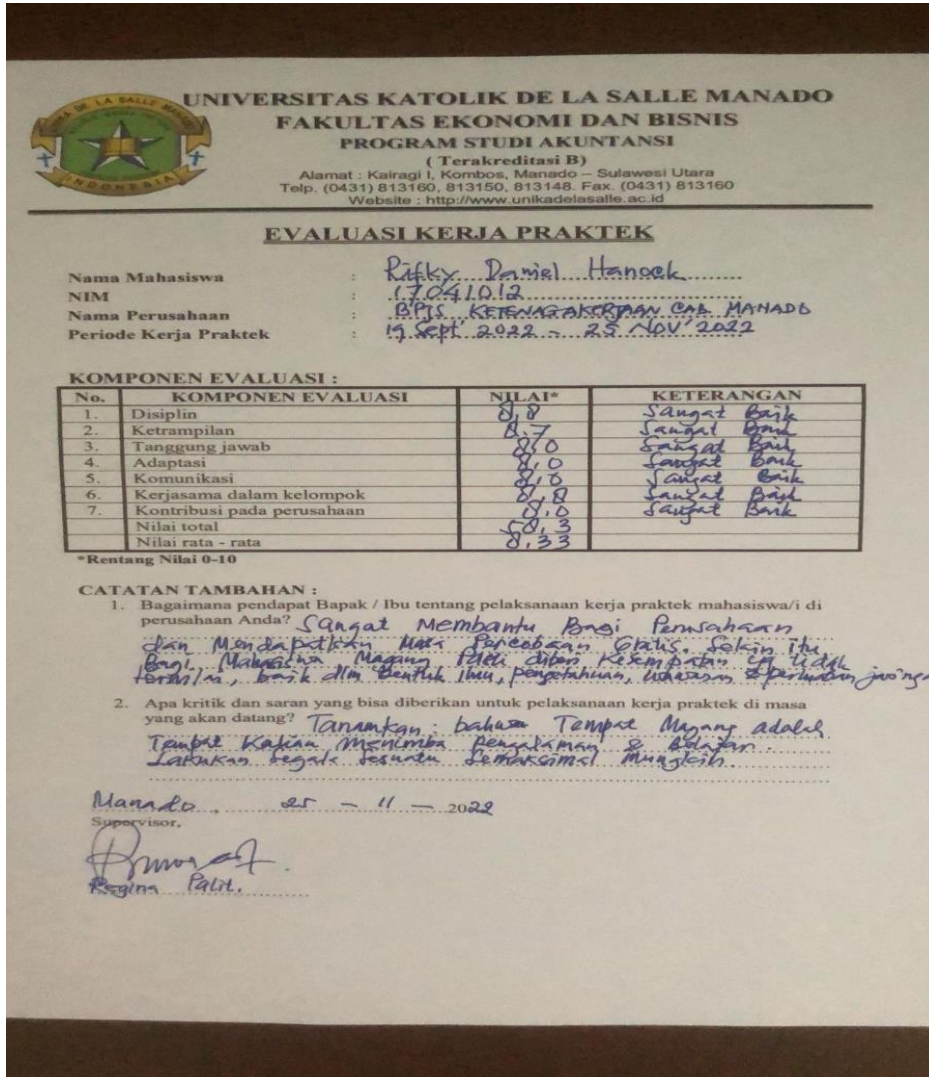 UNIVERSITAS KATOLIK DE LA SALLE MANADO
FAKULTAS EKONOMI DAN BISNIS
PROGRAM STUDI AKUNTANSI
( Terakreditasi B)
Alamat : Kairagi I, Kombos, Manado – Sulawesi Utara
Telp. (0431) 813160, 813150, 813148. Fax. (0431) 813160
Website : http://www.unikadelasalle.ac.id
INDONESIA
EVALUASI KERJA PRAKTEK
Nama Mahasiswa : Rifky Daniel Hanock
NIM : 17041012
Nama Perusahaan : BPJS KETENAGAKERJAAN CAB. MANADO
Periode Kerja Praktek : 19 Sept' 2022 - 25 NOV' 2022
KOMPONEN EVALUASI :
No. KOMPONEN EVALUASI NILAI* KETERANGAN
1. Disiplin 8,8 Sangat Baik
2. Ketrampilan 8.7 Sangat Baik
3. Tanggung jawab 8,0 Sangat Baik
4. Adaptasi 8,0 Sangat Baik
5. Komunikasi 8,0 Sangat Baik
6. Kerjasama dalam kelompok 8,8 Sangat Baik
7. Kontribusi pada perusahaan 8,0 Sangat Baik
Nilai total 58,3
Nilai rata - rata 8,33
*Rentang Nilai 0-10
CATATAN TAMBAHAN :
1. Bagaimana pendapat Bapak / Ibu tentang pelaksanaan kerja praktek mahasiswa/i di
perusahaan Anda? Sangat Membantu Bagi Perusahaan
dan Mendapatkan Masa Percobaan Gratis. Selain itu
Bagi Mahasiswa Magang diberi Kesempatan yg tidak
baik dlm Bentuk ilmu, pengetahuan, wawasan &
2. Apa kritik dan saran yang bisa diberikan untuk pelaksanaan kerja praktek di masa
yang akan datang? Tanamkan bahwa Tempat Magang adalah
Tempat Kalian menimba Pengalaman & Belajar.
Lakukan segala sesuatu semaksimal Mungkin.
Manado, 25 - 11 - 2022
Supervisor,
Regina Palit.